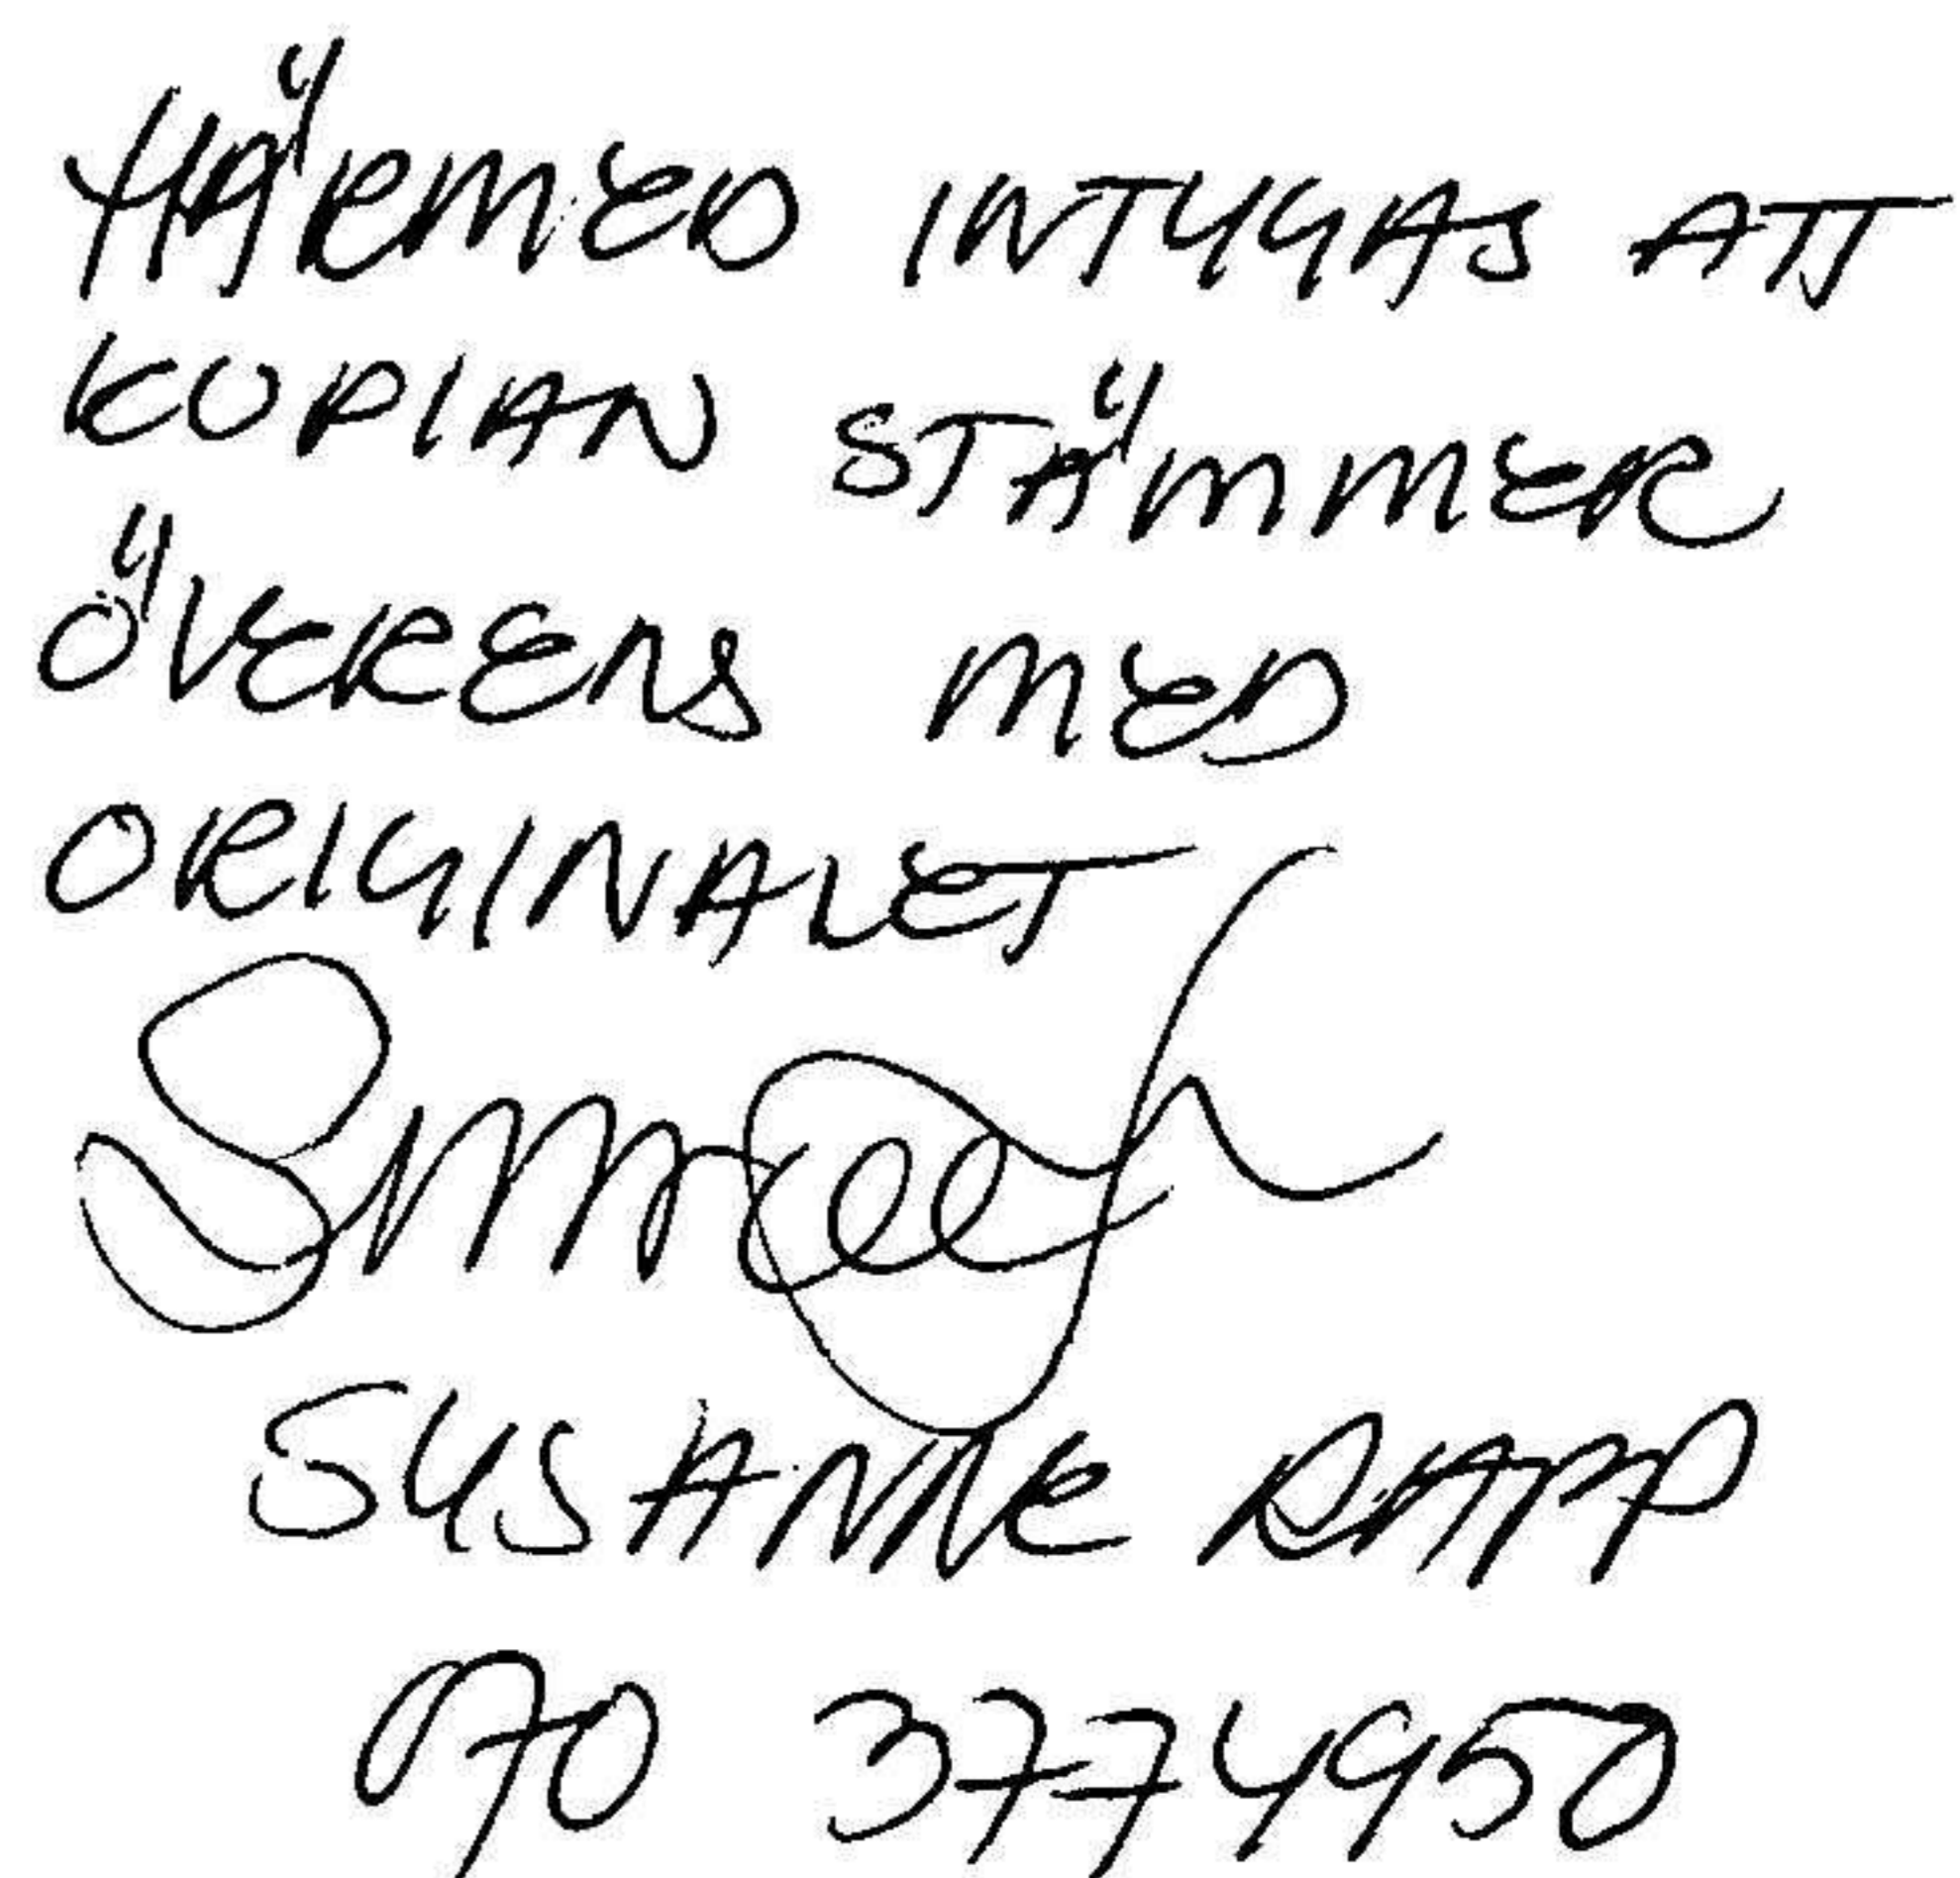 HÄRMED INTYGAS ATT
KOPIAN STÄMMER
ÖVERENS MED
ORIGINALET
SUSANNE RAPP
070 3774950